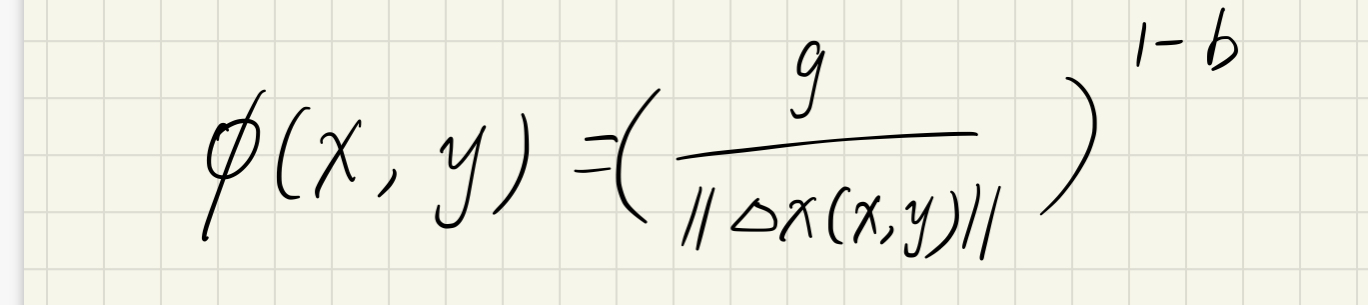 ϕ(x, y) = (g / ||△x(x,y)||)^{1-b}